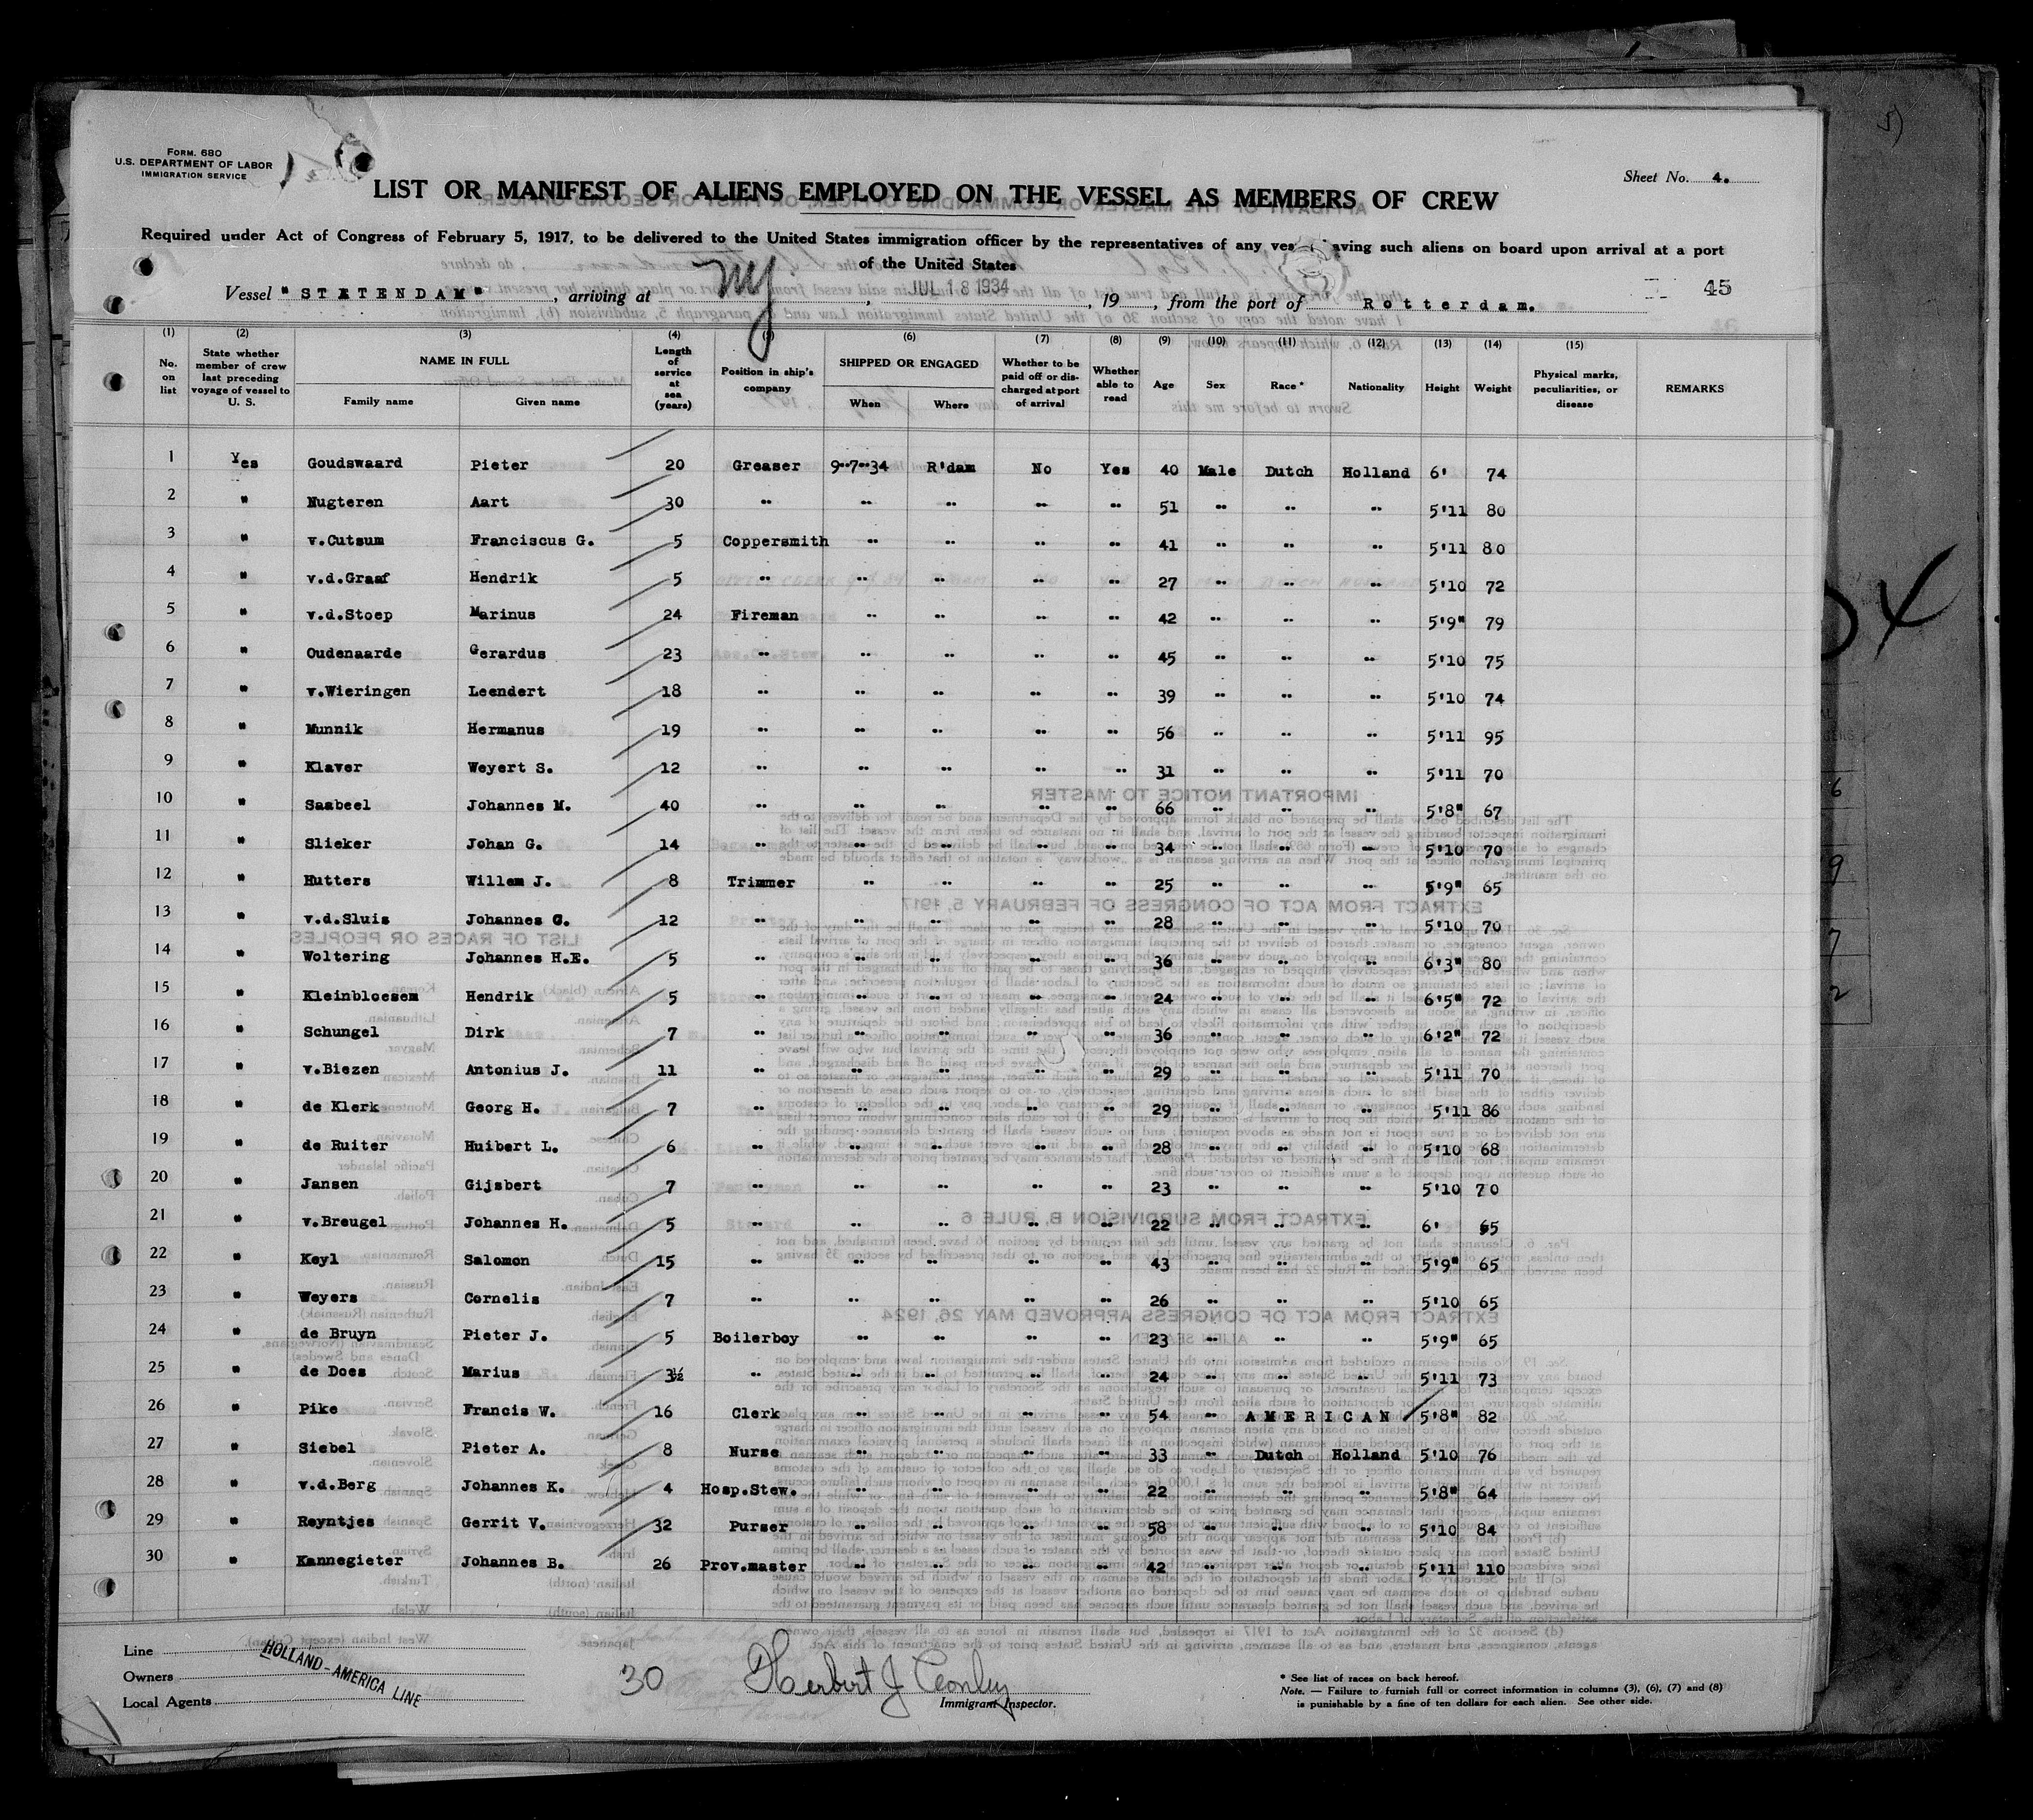 FORM. 680
U.S. DEPARTMENT OF LABOR
IMMIGRATION SERVICE
Sheet No. 4.
LIST OR MANIFEST OF ALIENS EMPLOYED ON THE VESSEL AS MEMBERS OF CREW
Required under Act of Congress of February 5, 1917, to be delivered to the United States immigration officer by the representatives of any aving such aliens on board upon arrival at a port
of the United States
Vessel "STATENDAM", arriving at NY, JUL 18 1934, 19, from the port of Rotterdam. 45
(1) (2) (3) (4) (6) (7) (8) (9) (10) (11) (12) (13) (14) (15)
No. on list State whether member of crew last preceding voyage of vessel to U. S. NAME IN FULL Family name Given name Length of service at sea (years) Position in ship's company SHIPPED OR ENGAGED When Where Whether to be paid off or discharged at port of arrival Whether able to read Age Sex Race * Nationality Height Weight Physical marks, peculiarities, or disease REMARKS
1 Yes Goudswaard Pieter 20 Greaser 9-7-34 R'dam No Yes 40 Male Dutch Holland 6' 74
2 " Nugteren Aart 30 " " " " " 51 " " " 5'11 80
3 " v.Cutsum Franciscus G. 5 Coppersmith " " " " 41 " " " 5'11 80
4 " v.d.Graaf Hendrik 5 " " " " " 27 " " " 5'10 72
5 " v.d.Stoep Marinus 24 Fireman " " " " 42 " " " 5'9" 79
6 " Oudenaarde Gerardus 23 " " " " " 45 " " " 5'10 75
7 " v.Wieringen Leendert 18 " " " " " 39 " " " 5'10 74
8 " Munnik Hermanus 19 " " " " " 56 " " " 5'11 95
9 " Klaver Weyert S. 12 " " " " " 31 " " " 5'11 70
10 " Saabeel Johannes M. 40 " " " " " 66 " " " 5'8" 67
11 " Slieker Johan G. 14 " " " " " 34 " " " 5'10 70
12 " Hutters Willem J. 8 Trimmer " " " " 25 " " " 5'9" 65
13 " v.d.Sluis Johannes C. 12 " " " " " 28 " " " 5'10 70
14 " Woltering Johannes H.E. 5 " " " " " 36 " " " 6'3" 80
15 " Kleinbloesem Hendrik 5 " " " " " 24 " " " 6'5" 72
16 " Schungel Dirk 7 " " " " " 36 " " " 6'2" 72
17 " v.Biezen Antonius J. 11 " " " " " 29 " " " 5'11 70
18 " de Klerk Georg H. 7 " " " " " 29 " " " 5'11 86
19 " de Ruiter Huibert L. 6 " " " " " 28 " " " 5'10 68
20 " Jansen Gijsbert 7 " " " " " 23 " " " 5'10 70
21 " v.Breugel Johannes H. 5 " " " " " 22 " " " 6' 65
22 " Keyl Salomon 15 " " " " " 43 " " " 5'9" 65
23 " Weyers Cornelis 7 " " " " " 26 " " " 5'10 65
24 " de Bruyn Pieter J. 5 Boilerboy " " " " 23 " " " 5'9" 65
25 " de Does Marius 3½ " " " " " 24 " " " 5'11 73
26 " Pike Francis W. 16 Clerk " " " " 54 " AMERICAN 5'8" 82
27 " Siebel Pieter A. 8 Nurse " " " " 33 " Dutch Holland 5'10 76
28 " v.d.Berg Johannes K. 4 Hosp.Stew. " " " " 22 " " " 5'8" 64
29 " Reyntjes Gerrit V. 32 Purser " " " " 58 " " " 5'10 84
30 " Kannegieter Johannes B. 26 Prov.master " " " " 42 " " " 5'11 110
Line
Owners
Local Agents
HOLLAND-AMERICA LINE
30
Herbert J Conley
Immigrant Inspector.
* See list of races on back hereof.
Note. — Failure to furnish full or correct information in columns (3), (6), (7) and (8)
is punishable by a fine of ten dollars for each alien. See other side.